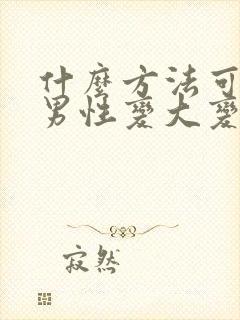 什麼方法可
男性變大變
寂然